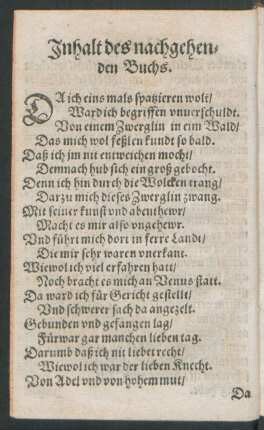 Inhalt des nachgehen-
den Buchs.
DA ich eins mals spatzieren wolt/
Ward ich begriffen vnuerschuldt.
Von einem Zwerglin in eim Wald/
Das mich wol feßlen kundt so bald.
Daß ich jm nit entweichen mocht/
Demnach hub sich ein groß gebocht.
Denn ich hin durch die Wolcken trang/
Darzu mich dieses Zwerglin zwang.
Mit seiner kunst vnd abenthewr/
Macht es mir also vngehewr.
Vnd führt mich dort in ferre Landt/
Die mir sehr waren vnerkant.
Wiewol ich viel erfahren hatt/
Noch bracht es mich an Venus statt.
Da ward ich für Gericht gestellt/
Vnd schwerer sach da angezelt.
Gebunden vnd gefangen lag/
Fürwar gar manchen lieben tag.
Darumb daß ich nit liebet recht/
Wiewol ich war der lieben Knecht.
Von Adel vnd von hohem mut/
Da